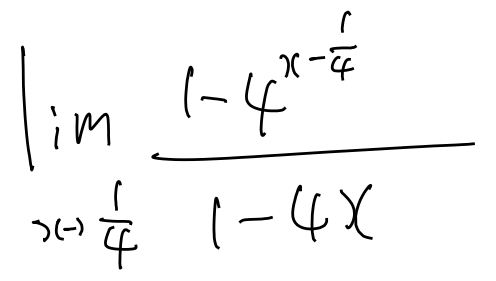 lim_{x→1/4} \frac{1-4^{x-\frac{1}{4}}}{1-4x}